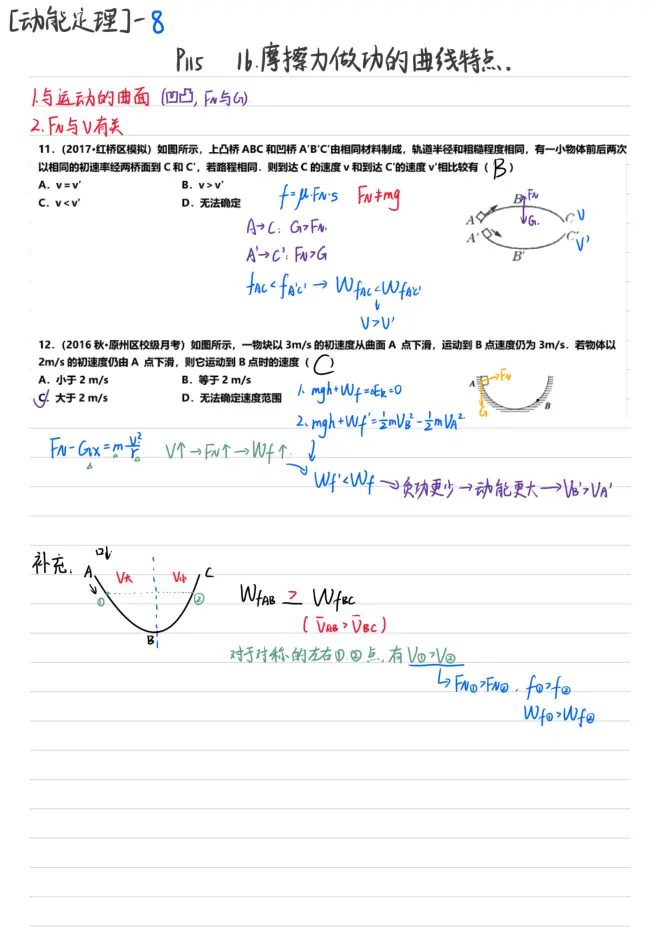 [动能定理]-8
P115 16.摩擦力做功的曲线特点.
1.与运动的曲面 (凹凸, FN与G)
2.FN与V有关
11.（2017•红桥区模拟）如图所示，上凸桥 ABC 和凹桥 A'B'C'由相同材料制成，轨道半径和粗糙程度相同，有一小物体前后两次
以相同的初速率经两桥面到 C 和 C'，若路程相同．则到达 C 的速度 v 和到达 C'的速度 v'相比较有（ B ）
A．v＝v' B．v＞v'
C．v＜v' D．无法确定
f=μ·FN·s FN≠mg
A→C: G>FN.
A'→C': FN>G
fAC<fA'C' → WfAC<WfA'C'
↓
V>V'
A B C V FN G.
A' B' C' V'
12.（2016 秋•原州区校级月考）如图所示，一物块以 3m/s 的初速度从曲面 A 点下滑，运动到 B 点速度仍为 3m/s．若物体以
2m/s 的初速度仍由 A 点下滑，则它运动到 B 点时的速度（ C ）
A．小于 2 m/s B．等于 2 m/s
C．大于 2 m/s D．无法确定速度范围
A B FN G
1. mgh+Wf=ΔEk=0
2. mgh+Wf'=½mVB²-½mVA²
FN-Gx=m v²/r V↑→FN↑→Wf↑.
Wf'<Wf → 负功更少→动能更大→VB'>VA'
补充.
A V大 V小 C
① ②
B
WfAB > WfBC
(V̄AB>V̄BC)
对于对称的左右①.②点,有V①>V②
↳FN①>FN②. f①>f②
Wf①>Wf②